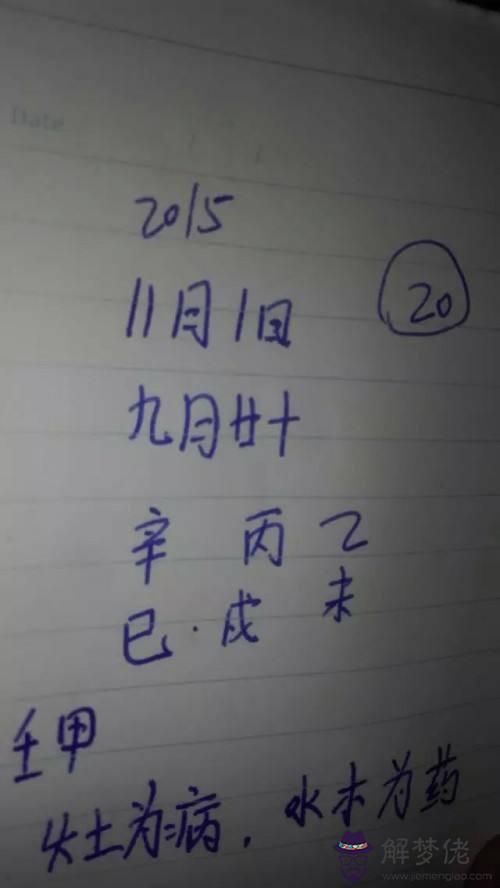 Date
2015
11月1日
20
九月廿十
辛 丙 乙
巳·戌 未
壬甲
火土为病,水木为药
解梦佬
www.jiemenglao.com